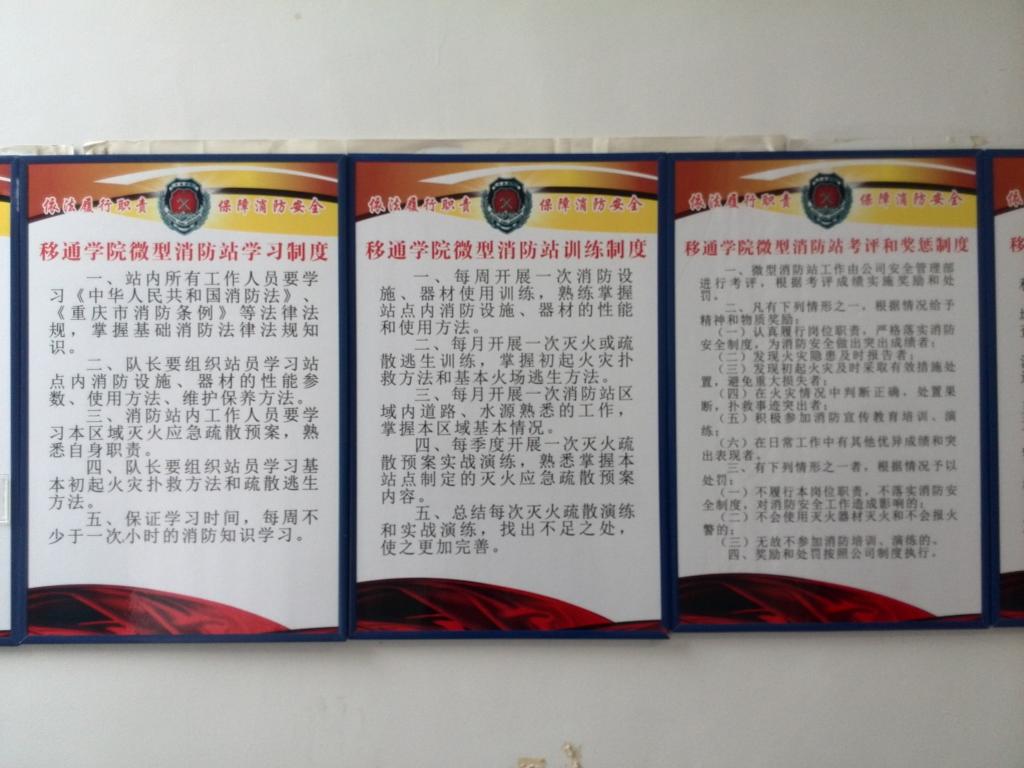 依法履行职责 保障消防安全
移通学院微型消防站学习制度
一、站内所有工作人员要学
习《中华人民共和国消防法》、
《重庆市消防条例》等法律法
规，掌握基础消防法律法规知
识。
二、队长要组织站员学习站
点内消防设施、器材的性能参
数、使用方法、维护保养方法。
三、消防站内工作人员要学
习本区域灭火应急疏散预案，熟
悉自身职责。
四、队长要组织站员学习基
本初起火灾扑救方法和疏散逃生
方法。
五、保证学习时间，每周不
少于一次小时的消防知识学习。
依法履行职责 保障消防安全
移通学院微型消防站训练制度
一、每周开展一次消防设
施、器材使用训练，熟练掌握
站点内消防设施、器材的性能
和使用方法。
二、每月开展一次灭火或疏
散逃生训练，掌握初起火灾扑
救方法和基本火场逃生方法。
三、每月开展一次消防站区
域内道路、水源熟悉的工作，
掌握本区域基本情况。
四、每季度开展一次灭火疏
散预案实战演练，熟悉掌握本
站点制定的灭火应急疏散预案
内容。
五、总结每次灭火疏散演练
和实战演练，找出不足之处，
使之更加完善。
依法履行职责 保障消防安全
移通学院微型消防站考评和奖惩制度
一、微型消防站工作由公司安全管理部
进行考评，根据考评成绩实施奖励和处
罚。
二、凡有下列情形之一，根据情况给予
精神和物质奖励：
（一）认真履行岗位职责，严格落实消防
安全制度，为消防安全做出突出成绩者；
（二）发现火灾隐患及时报告者；
（三）发现初起火灾及时采取有效措施处
置，避免重大损失者；
（四）在火灾情况中判断正确、处置果
断，扑救事迹突出者；
（五）积极参加消防宣传教育培训、演
练；
（六）在日常工作中有其他优异成绩和突
出表现者。
三、有下列情形之一者，根据情况予以
处罚：
（一）不履行本岗位职责，不落实消防安
全制度，对消防安全工作造成影响的；
（二）不会使用灭火器材灭火和不会报火
警的；
（三）无故不参加消防培训、演练的。
四、奖励和处罚按照公司制度执行。